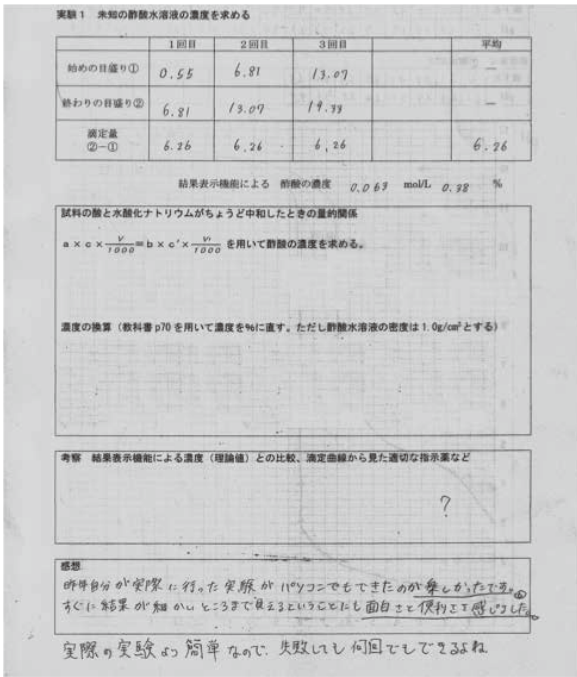 実験1 未知の酢酸水溶液の濃度を求める
1回目 2回目 3回目 平均
始めの目盛り① 0.55 6.81 13.07 —
終わりの目盛り② 6.81 13.07 19.33 —
滴定量
②-① 6.26 6.26 6.26 6.26
結果表示機能による 酢酸の濃度 0.063 mol/L 0.38 %
試料の酸と水酸化ナトリウムがちょうど中和したときの量的関係
a×c×V/1000=b×c'×V'/1000 を用いて酢酸の濃度を求める。
濃度の換算(教科書p70を用いて濃度を%に直す。ただし酢酸水溶液の密度は1.0g/cm³とする)
考察 結果表示機能による濃度(理論値)との比較、滴定曲線から見た適切な指示薬など
?
感想
昨年自分が実際に行った実験がパソコンでもできたのが楽しかったです。
すぐに結果が細かいところまで見えるということにも面白さと便利さを感じました。
実際の実験より簡単なので、失敗しても何回でもできるよね